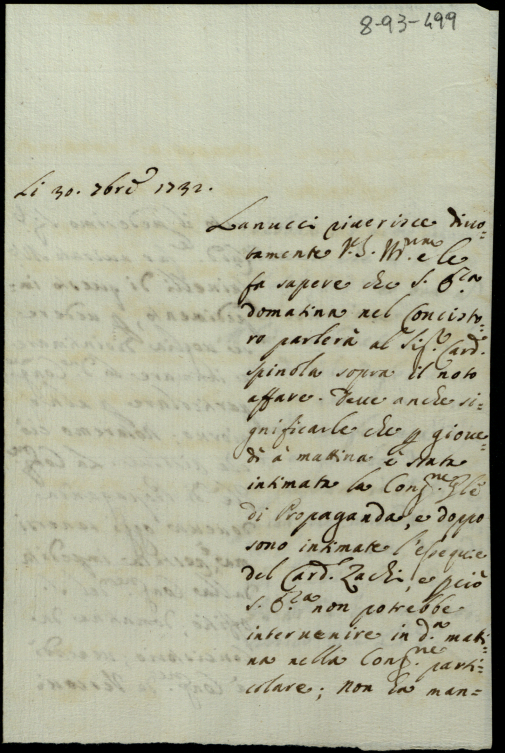 8-93-499
Li 30. 7bre 1732.
Lanucci riverisce divo-
tamente V.S. Ill.ma e le
fa sapere che S. E.za
domatina nel Concisto-
ro parlerà al Sig.r Card.
Spinola sopra il noto
affare. Deve anche si-
gnificarle che p giove-
dì à mattina è stata
intimata la Cong.ne Gle
di Propaganda, e doppo
sono intimate l'esequie
del Card. Zachi, e pciò
S. E.za non potrebbe
intervenire in d.a mati-
na nella Cong.ne parti-
colare; non ha man-